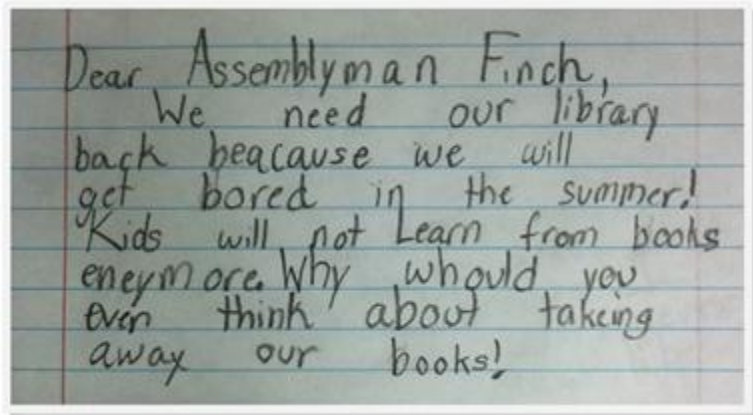 Dear Assemblyman Finch,
We need our library
back beacause we will
get bored in the summer!
Kids will not Learn from books
eneymore. Why whould you
even think about takeing
away our books!